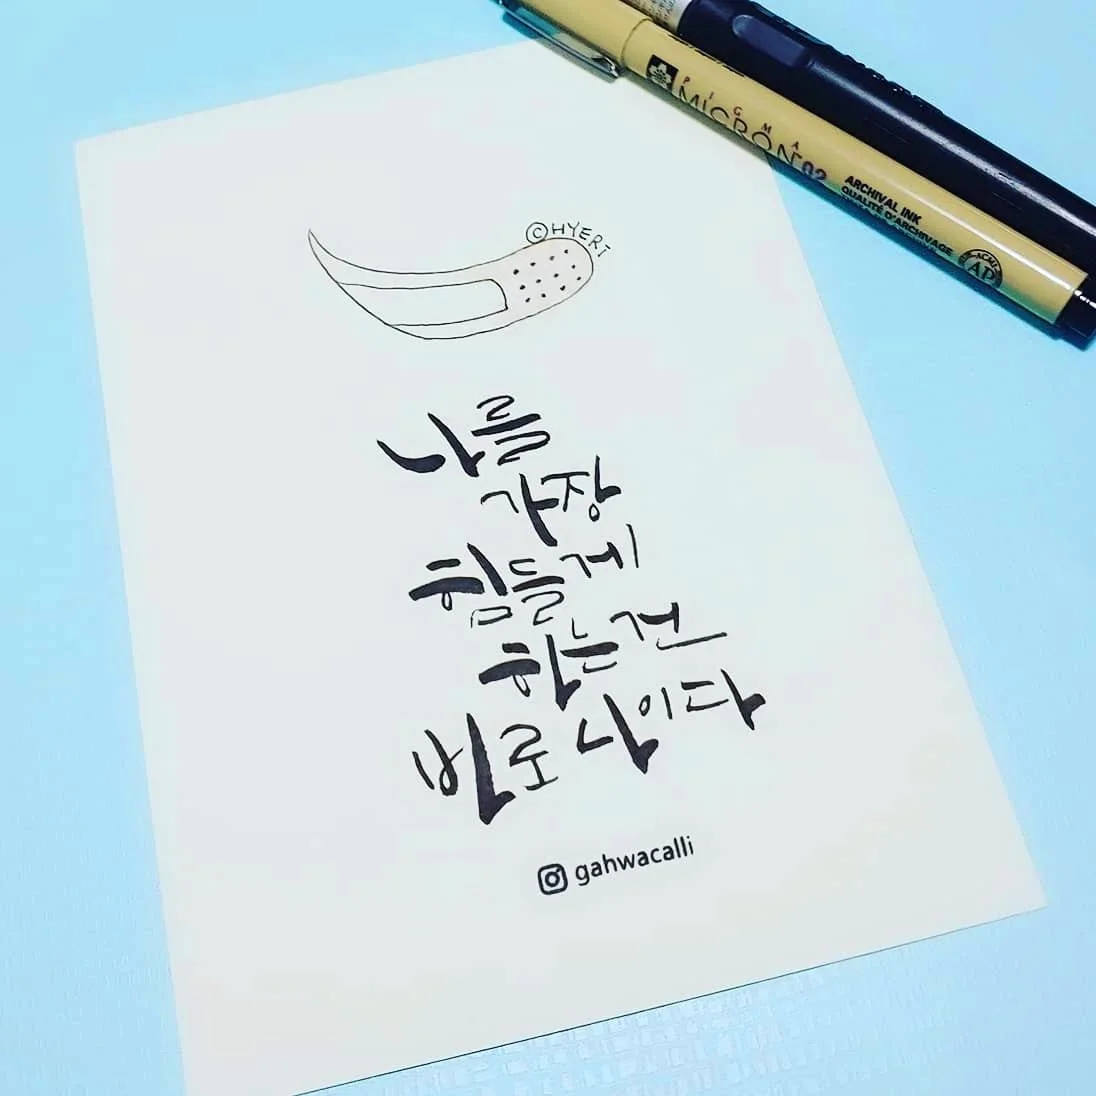 PIGMA
MICRON 02
ARCHIVAL INK
QUALITÉ D'ARCHIVAGE
ACMI
AP
©HYERI
나를
가장
힘들게
하는건
바로 나이다
gahwacalli